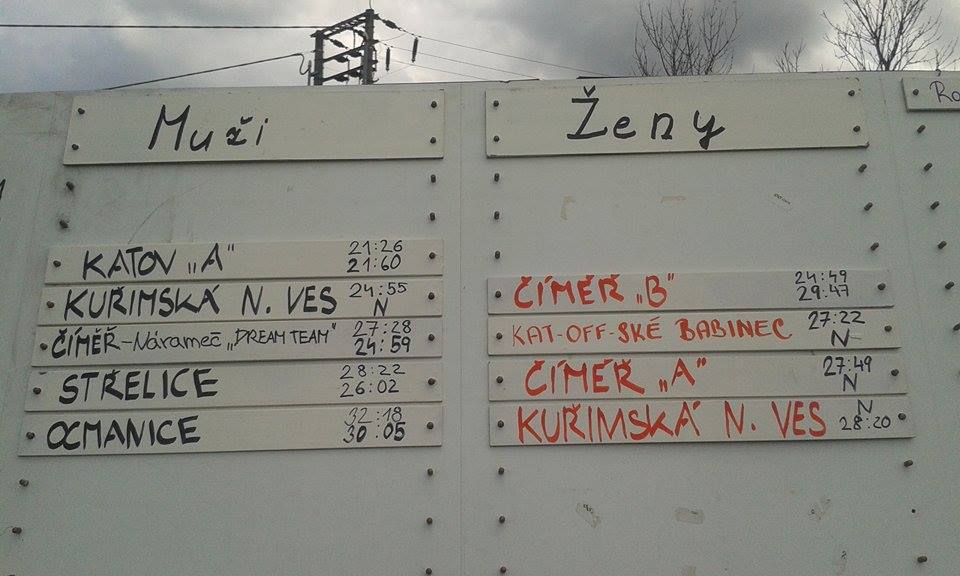 Muži
KATOV „A" 21:26
21:60
KUŘIMSKÁ N. VES 24:55
N
ČÍMĚŘ-Nárameč „DREAM TEAM" 27:28
24:59
STŘELICE 28:22
26:02
OCMANICE 32:18
30:05
Ženy
ČÍMĚŘ „B" 24:49
29:47
KAT-OFF-SKÉ BABINEC 27:22
N
ČÍMĚŘ „A" 27:49
N
KUŘIMSKÁ N. VES N
28:20